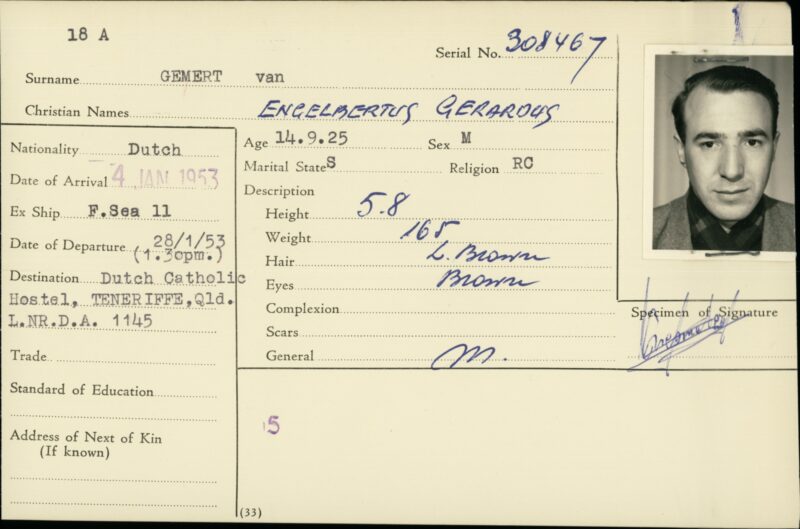 18 A
Serial No. 308467
Surname GEMERT van
Christian Names ENGELBERTUS GERARDUS
Nationality Dutch
Date of Arrival 4 JAN 1953
Ex Ship F.Sea 11
Date of Departure 28/1/53
(1.30pm.)
Destination Dutch Catholic
Hostel, TENERIFFE,Qld.
L.NR.D.A. 1145
Trade
Standard of Education
Address of Next of Kin
(If known)
Age 14.9.25 Sex M
Marital State S Religion RC
Description
Height 5.8
Weight 165
Hair L. Brown
Eyes Brown
Complexion
Scars
General M.
Specimen of Signature
5
(33)